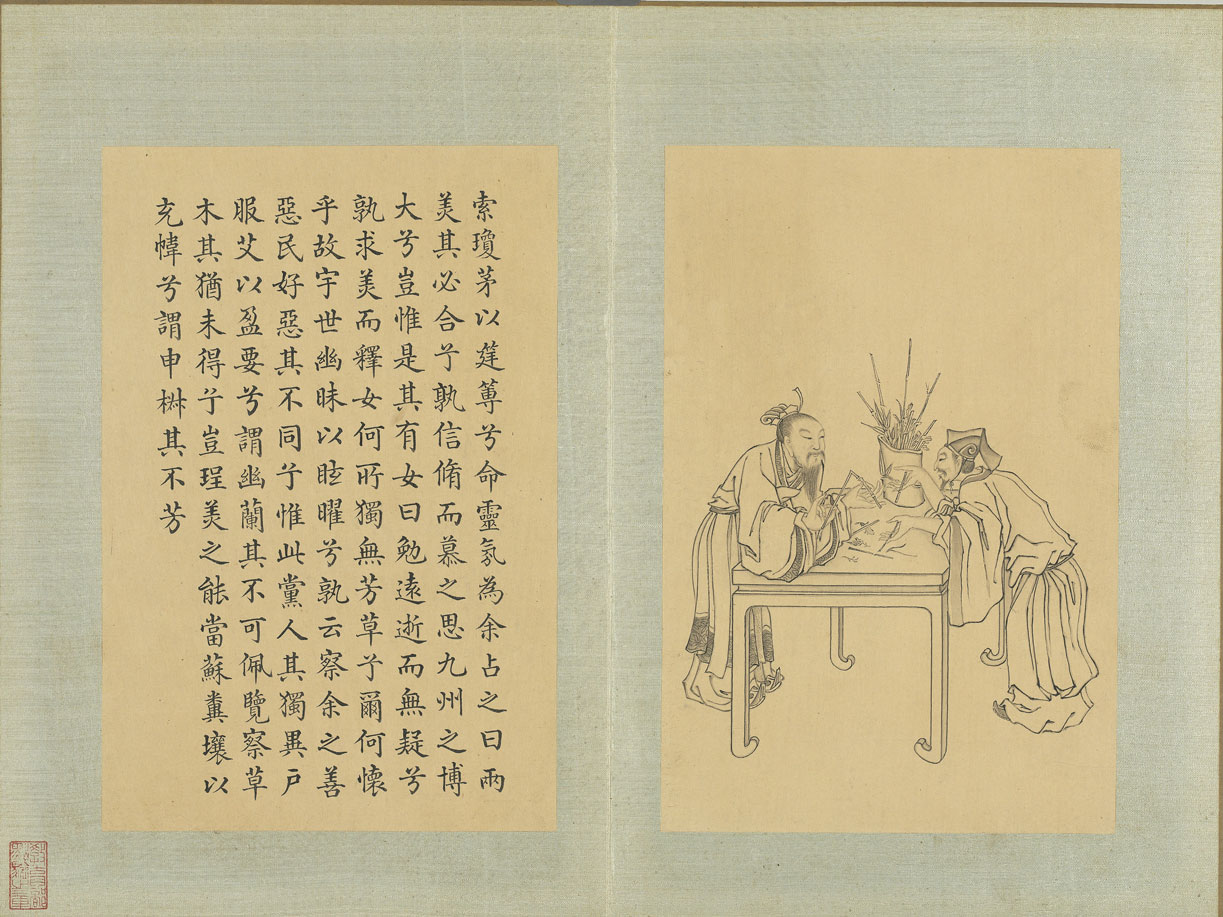 索瓊茅以筳篿兮命靈氛為余占之曰兩
美其必合兮孰信脩而慕之思九州之博
大兮豈惟是其有女曰勉遠逝而無疑兮
孰求美而釋女何所獨無芳草兮爾何懷
乎故宇世幽昧以眩曜兮孰云察余之善
惡民好惡其不同兮惟此黨人其獨異戶
服艾以盈要兮謂幽蘭其不可佩覽察草
木其猶未得兮豈珵美之能當蘇糞壤以
充幃兮謂申椒其不芳